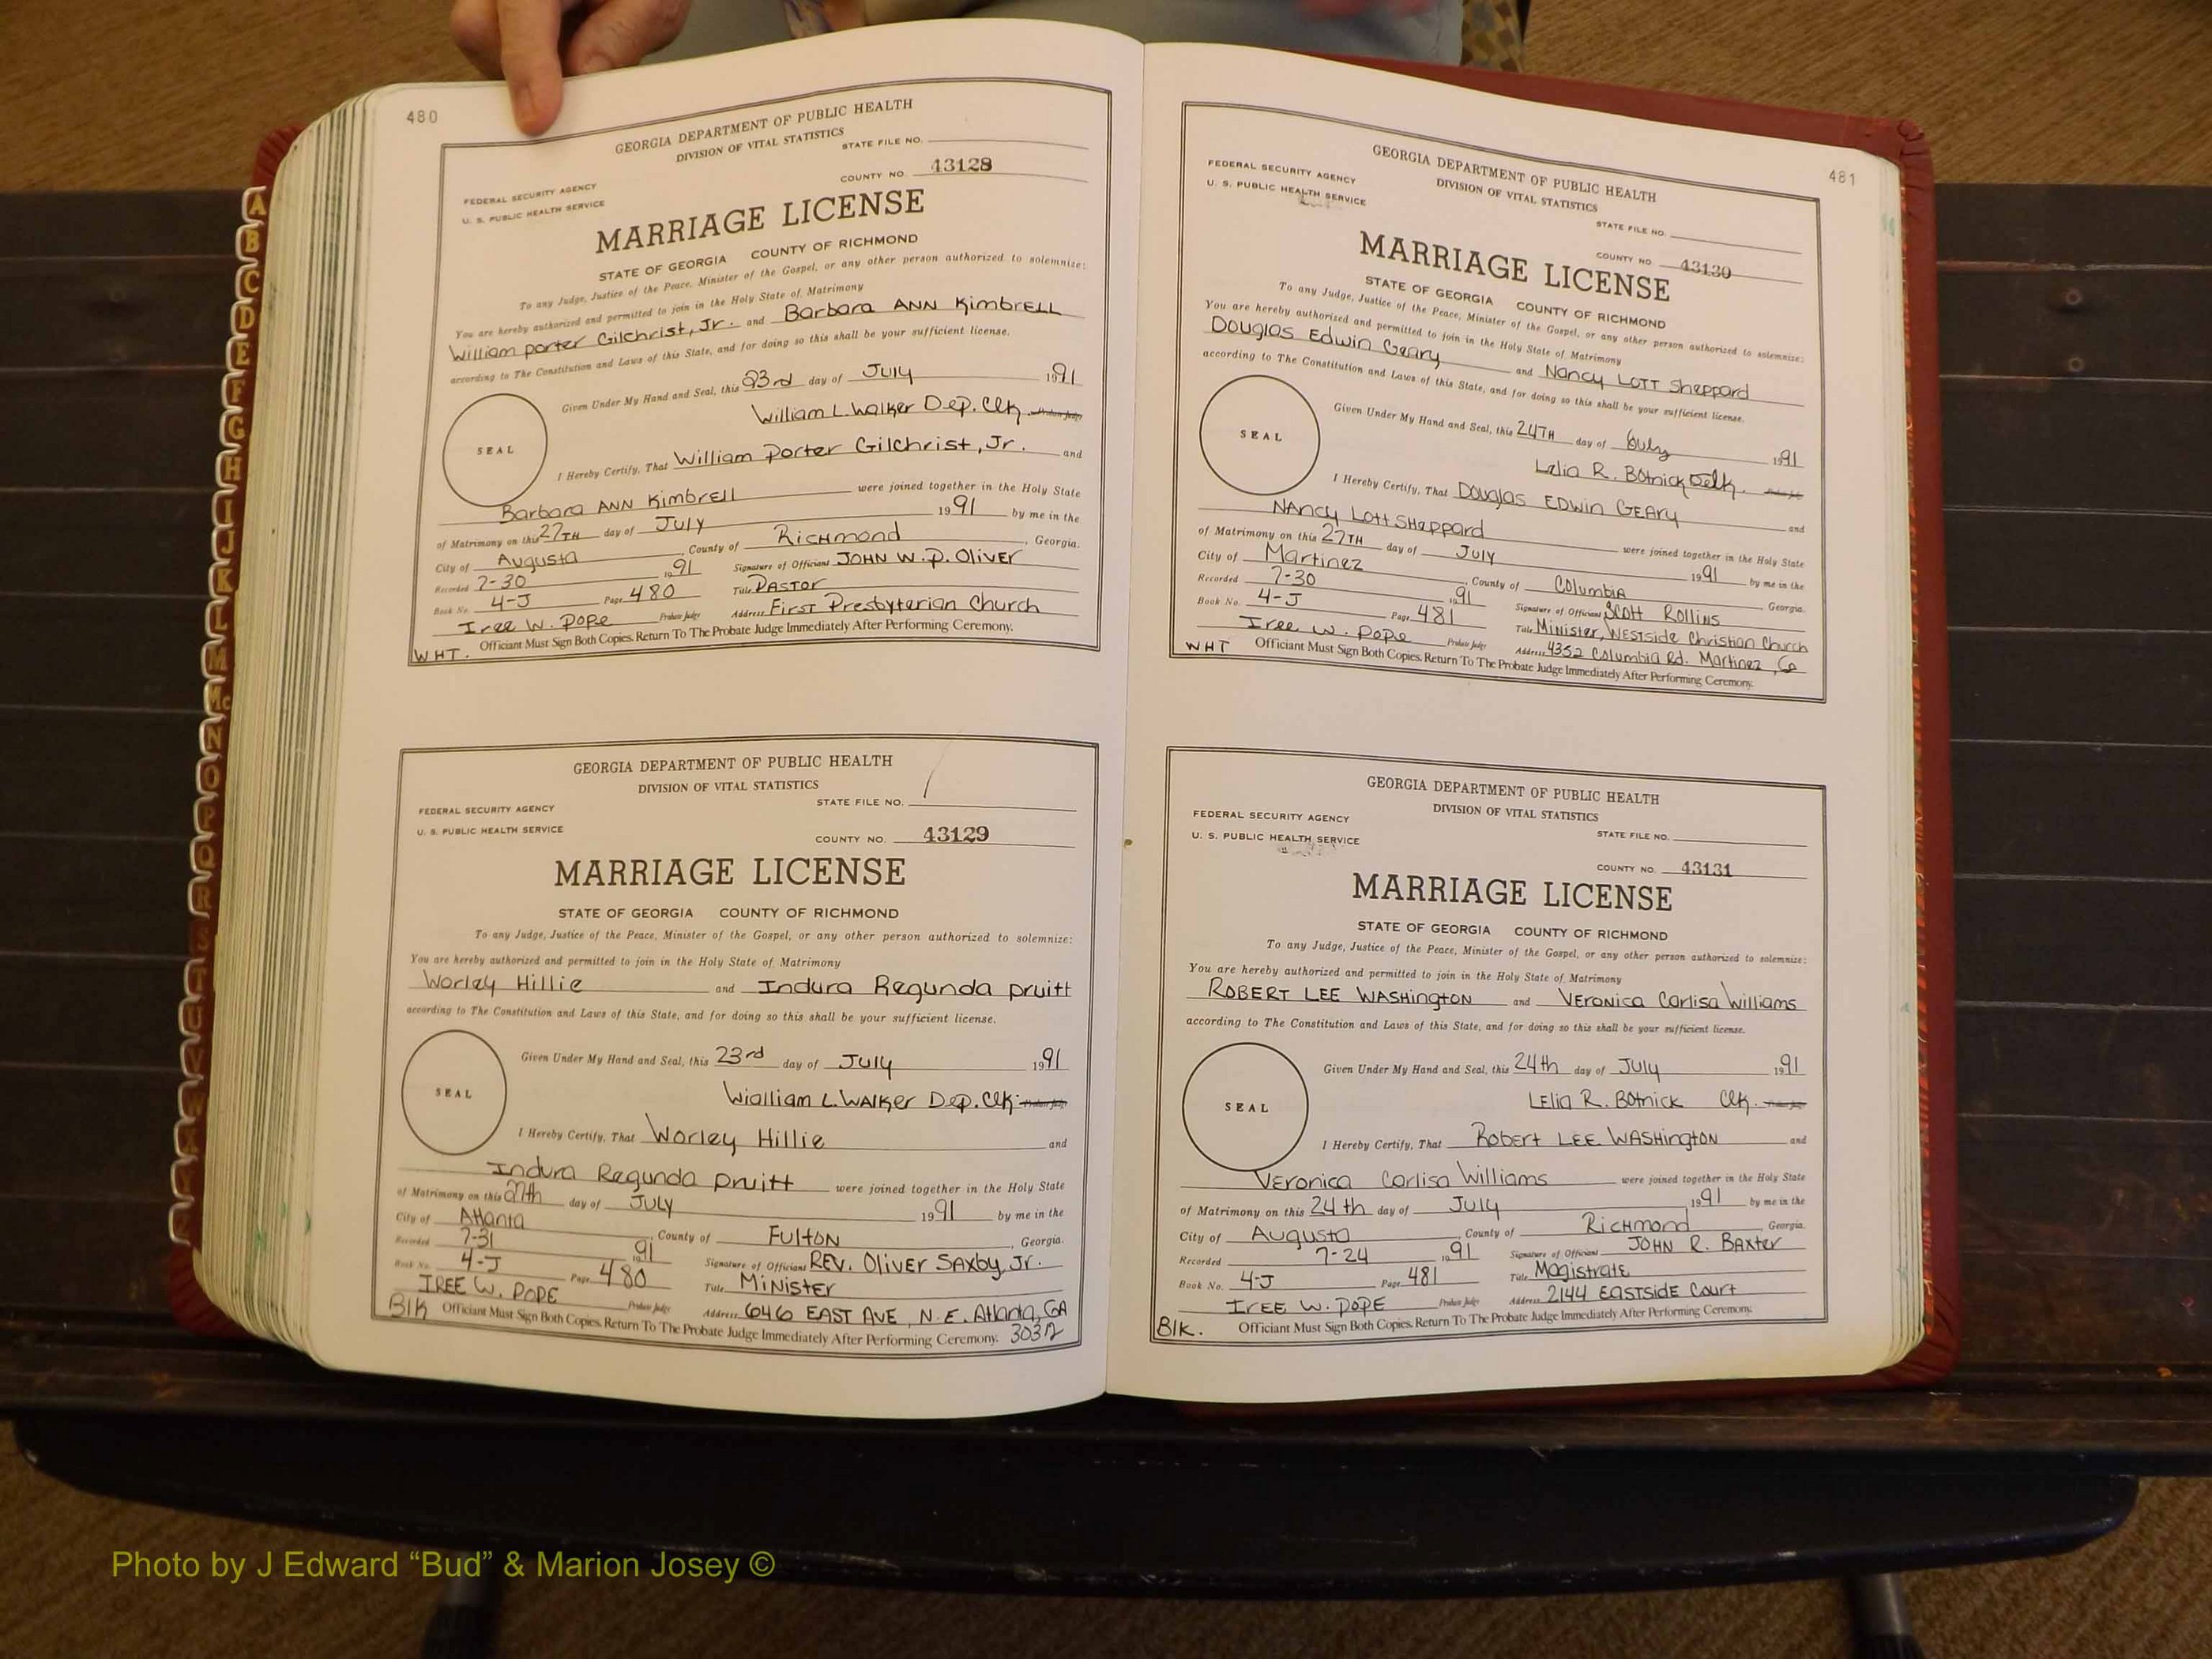 480
GEORGIA DEPARTMENT OF PUBLIC HEALTH
DIVISION OF VITAL STATISTICS
STATE FILE NO.
FEDERAL SECURITY AGENCY
U. S. PUBLIC HEALTH SERVICE
COUNTY NO. 43128
MARRIAGE LICENSE
STATE OF GEORGIA COUNTY OF RICHMOND
To any Judge, Justice of the Peace, Minister of the Gospel, or any other person authorized to solemnize:
You are hereby authorized and permitted to join in the Holy State of Matrimony
William porter Gilchrist, Jr. and Barbara ANN KimbrELL
according to The Constitution and Laws of this State, and for doing so this shall be your sufficient license.
Given Under My Hand and Seal, this 23rd day of July 1991
William L. Walker Dep. Clk. Probate Judge
SEAL
I Hereby Certify, That William Porter Gilchrist, Jr. and
Barbara ANN Kimbrell were joined together in the Holy State
of Matrimony on this 27TH day of July 1991 by me in the
City of Augusta, County of Richmond, Georgia.
Recorded 7-30 1991 Signature of Officiant JOHN W. P. Oliver
Book No. 4-J Page 480 Title PASTOR
Iree W. Pope Probate Judge Address First Presbyterian Church
WHT. Officiant Must Sign Both Copies. Return To The Probate Judge Immediately After Performing Ceremony.
GEORGIA DEPARTMENT OF PUBLIC HEALTH
DIVISION OF VITAL STATISTICS
STATE FILE NO.
FEDERAL SECURITY AGENCY
U. S. PUBLIC HEALTH SERVICE
COUNTY NO. 43129
MARRIAGE LICENSE
STATE OF GEORGIA COUNTY OF RICHMOND
To any Judge, Justice of the Peace, Minister of the Gospel, or any other person authorized to solemnize:
You are hereby authorized and permitted to join in the Holy State of Matrimony
Worley Hillie and Indura Regunda pruitt
according to The Constitution and Laws of this State, and for doing so this shall be your sufficient license.
Given Under My Hand and Seal, this 23rd day of July 1991
Wialliam L. WAlker Dep. Clk. Probate Judge
SEAL
I Hereby Certify, That Worley Hillie and
Indura Regunda Pruitt were joined together in the Holy State
of Matrimony on this 27th day of JULY 1991 by me in the
City of Atlanta, County of FULTON, Georgia.
Recorded 7-31 1991 Signature of Officiant REV. Oliver SAxby, Jr.
Book No. 4-J Page 480 Title MiNister
IREE W. POPE Probate Judge Address 646 EAST AVE, N.E. Atlanta, GA
Blk Officiant Must Sign Both Copies. Return To The Probate Judge Immediately After Performing Ceremony.
481
GEORGIA DEPARTMENT OF PUBLIC HEALTH
DIVISION OF VITAL STATISTICS
FEDERAL SECURITY AGENCY
U. S. PUBLIC HEALTH SERVICE
STATE FILE NO.
COUNTY NO. 43130
MARRIAGE LICENSE
STATE OF GEORGIA COUNTY OF RICHMOND
To any Judge, Justice of the Peace, Minister of the Gospel, or any other person authorized to solemnize:
You are hereby authorized and permitted to join in the Holy State of Matrimony
Douglas Edwin Geary and Nancy LOTT Sheppard
according to The Constitution and Laws of this State, and for doing so this shall be your sufficient license.
Given Under My Hand and Seal, this 24TH day of July 1991
Lelia R. Botnick
SEAL
I Hereby Certify, That Douglas EDWin GEAry and
NANcy Lott SHeppard were joined together in the Holy State
of Matrimony on this 27TH day of July 1991 by me in the
City of Martinez, County of Columbia Georgia.
Recorded 7-30 1991 Signature of Officiant Scott Rollins
Book No. 4-J Page 481 Title Minister, WEStside Christian Church
Iree W. Pope Probate Judge Address 4352 Columbia Rd. Martinez, Ga
WHT Officiant Must Sign Both Copies. Return To The Probate Judge Immediately After Performing Ceremony.
GEORGIA DEPARTMENT OF PUBLIC HEALTH
DIVISION OF VITAL STATISTICS
FEDERAL SECURITY AGENCY
U. S. PUBLIC HEALTH SERVICE
STATE FILE NO.
COUNTY NO. 43131
MARRIAGE LICENSE
STATE OF GEORGIA COUNTY OF RICHMOND
To any Judge, Justice of the Peace, Minister of the Gospel, or any other person authorized to solemnize:
You are hereby authorized and permitted to join in the Holy State of Matrimony
ROBERT LEE WASHington and VEroNica Carlisa Williams
according to The Constitution and Laws of this State, and for doing so this shall be your sufficient license.
Given Under My Hand and Seal, this 24th day of July 1991
LElia R. Botnick Clk.
SEAL
I Hereby Certify, That Robert LEE WASHington and
Veronica Carlisa Williams were joined together in the Holy State
of Matrimony on this 24th day of July 1991 by me in the
City of Augusta, County of Richmond, Georgia.
Recorded 7-24 1991 Signature of Officiant JOHN R. BAxter
Book No. 4-J Page 481 Title Magistrate
IrEE W. POPE Probate Judge Address 2144 EASTSIDE Court
Blk. Officiant Must Sign Both Copies. Return To The Probate Judge Immediately After Performing Ceremony.
A
B
C
D
E
F
G
H
I
J
K
L
M
Mc
N
O
P
Q
R
S
T
U
V
W
Photo by J Edward “Bud” & Marion Josey ©